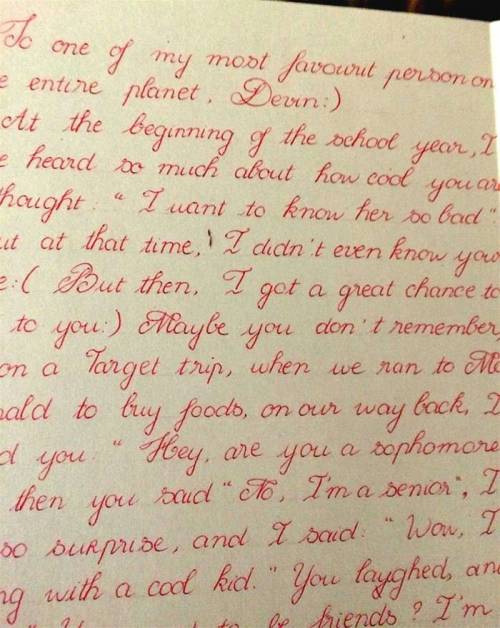 To one of my most favourit person on
e entire planet. Devin:)
At the beginning of the school year, I
e heard so much about how cool you ar
hought: " I want to know her so bad"
ut at that time, I didn't even know your
e:( But then, I got a great chance to
to you:) Maybe you don't remember,
on a Target trip, when we ran to Mc
nald to buy foods, on our way back, I
d you: " Hey, are you a sophomore
then you said " No, I'm a senior", I
so surprise, and I said: " Wow, I
ng with a cool kid." You layghed, and
to be friends? I'm